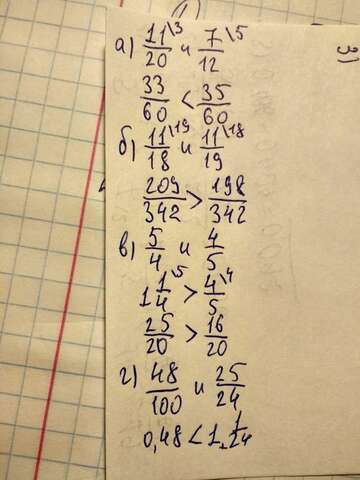 а) 11\3/20 и 7\5/12
33/60 < 35/60
б) 11\19/18 и 11\18/19
209/342 > 198/342
в) 5/4 и 4/5
1 1\5/4 > 4\4/5
25/20 > 16/20
г) 48/100 и 25/24
0,48 < 1 1/24
3)